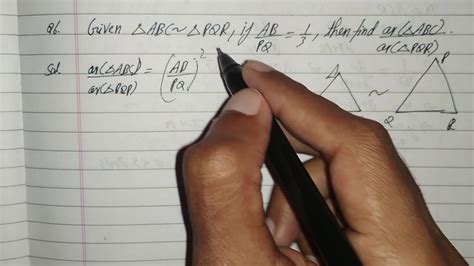 Q6. Given △ABC ~ △PQR, if AB/PQ = 1/3, then find ar(△ABC)/ar(△PQR).
Sol. ar(△ABC)/ar(△PQR) = (AB/PQ)²
~
P
Q R